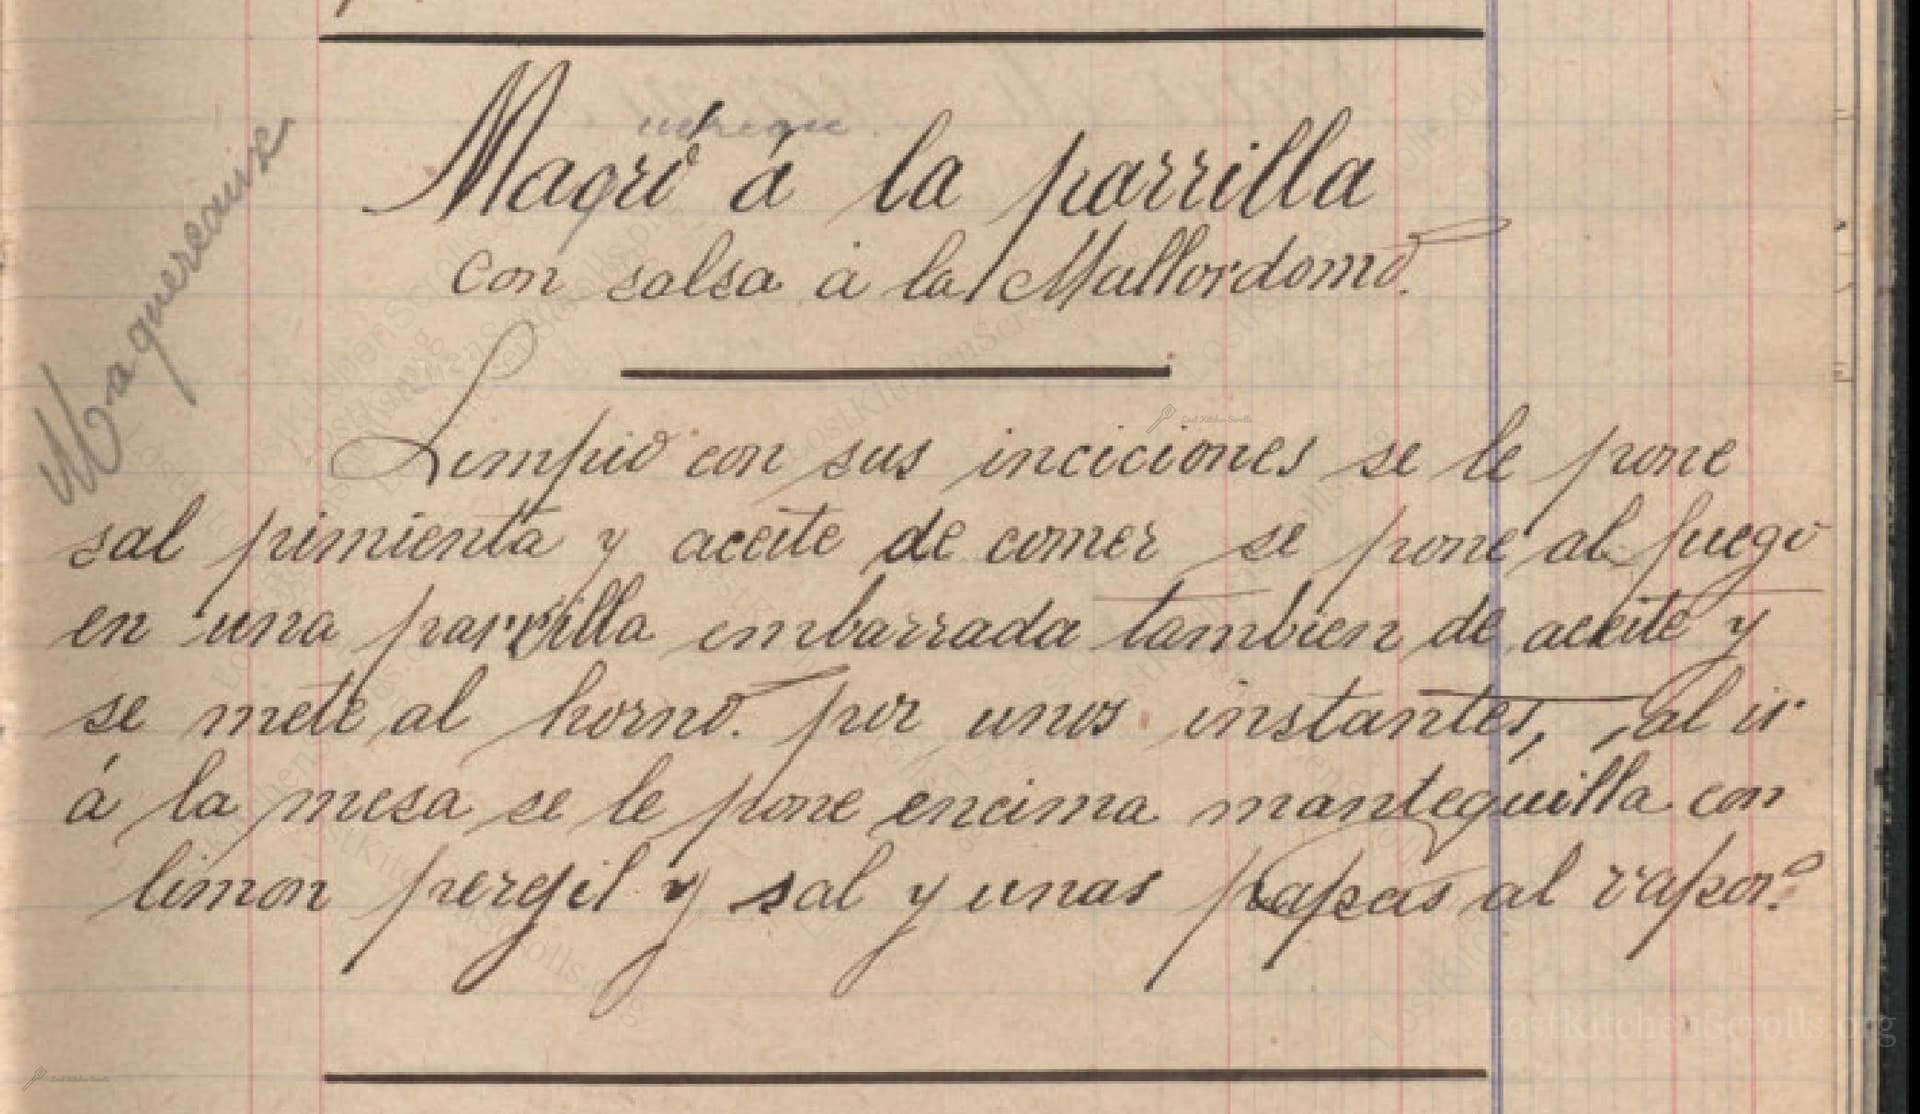 Maquereaux
Magro á la parrilla
con salsa á la Mallordomo.
Limpio con sus inciciones se le pone
sal pimienta y aceite de comer se pone al fuego
en una parrilla embarrada tambien de aceite y
se mete al horno. por unos instantes, al ir
á la mesa se le pone encima mantequilla con
limon pergil y sal y unas papas al vapor.
LostKitchenScrolls.org